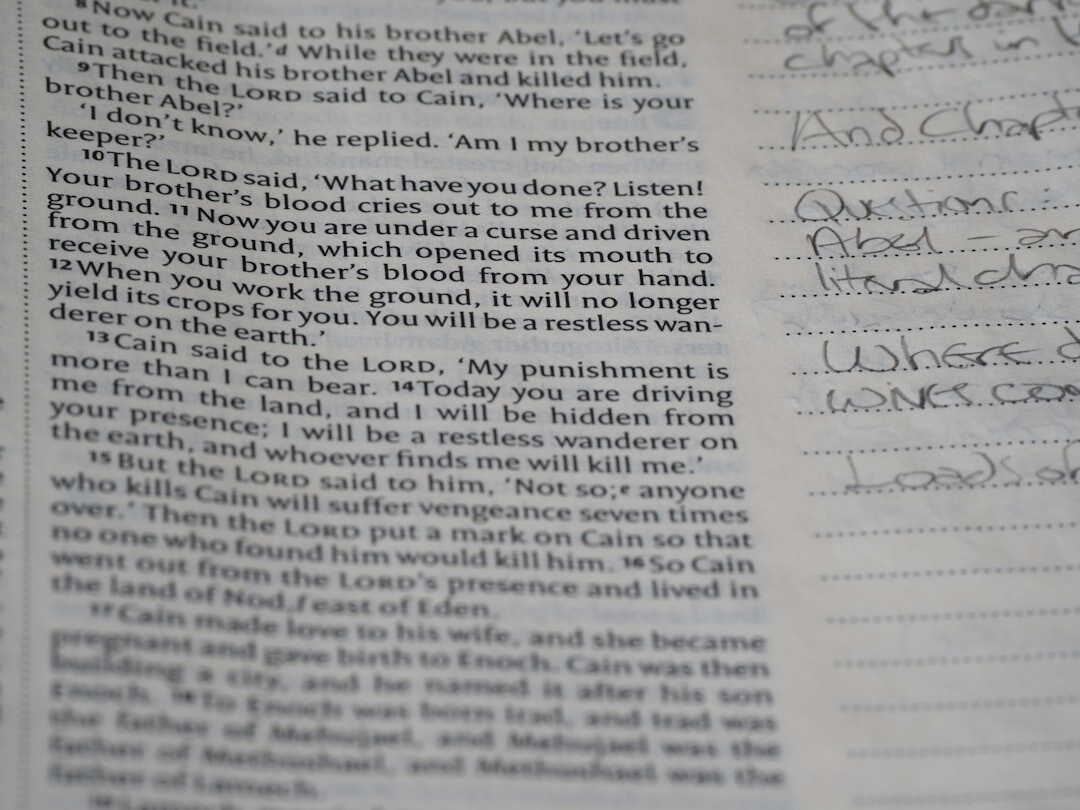 8 Now Cain said to his brother Abel, ‘Let's go
out to the field.’d While they were in the field,
Cain attacked his brother Abel and killed him.
9 Then the LORD said to Cain, ‘Where is your
brother Abel?’
‘I don't know,’ he replied. ‘Am I my brother's
keeper?’
10 The LORD said, ‘What have you done? Listen!
Your brother's blood cries out to me from the
ground. 11 Now you are under a curse and driven
from the ground, which opened its mouth to
receive your brother's blood from your hand.
12 When you work the ground, it will no longer
yield its crops for you. You will be a restless wan-
derer on the earth.’
13 Cain said to the LORD, ‘My punishment is
more than I can bear. 14 Today you are driving
me from the land, and I will be hidden from
your presence; I will be a restless wanderer on
the earth, and whoever finds me will kill me.’
15 But the LORD said to him, ‘Not so;e anyone
who kills Cain will suffer vengeance seven times
over.’ Then the LORD put a mark on Cain so that
no one who found him would kill him. 16 So Cain
went out from the LORD's presence and lived in
the land of Nod,f east of Eden.
17 Cain made love to his wife, and she became
pregnant and gave birth to Enoch. Cain was then
building a city, and he named it after his son
Enoch. 18 To Enoch was born Irad, and Irad was
the father of Mehujael, and Mehujael was the
father of Methushael, and Methushael was the
father of Lamech.
of the
chapter in
And Chapt
Questions:
Abel –
literal
Where
wives
Loads of